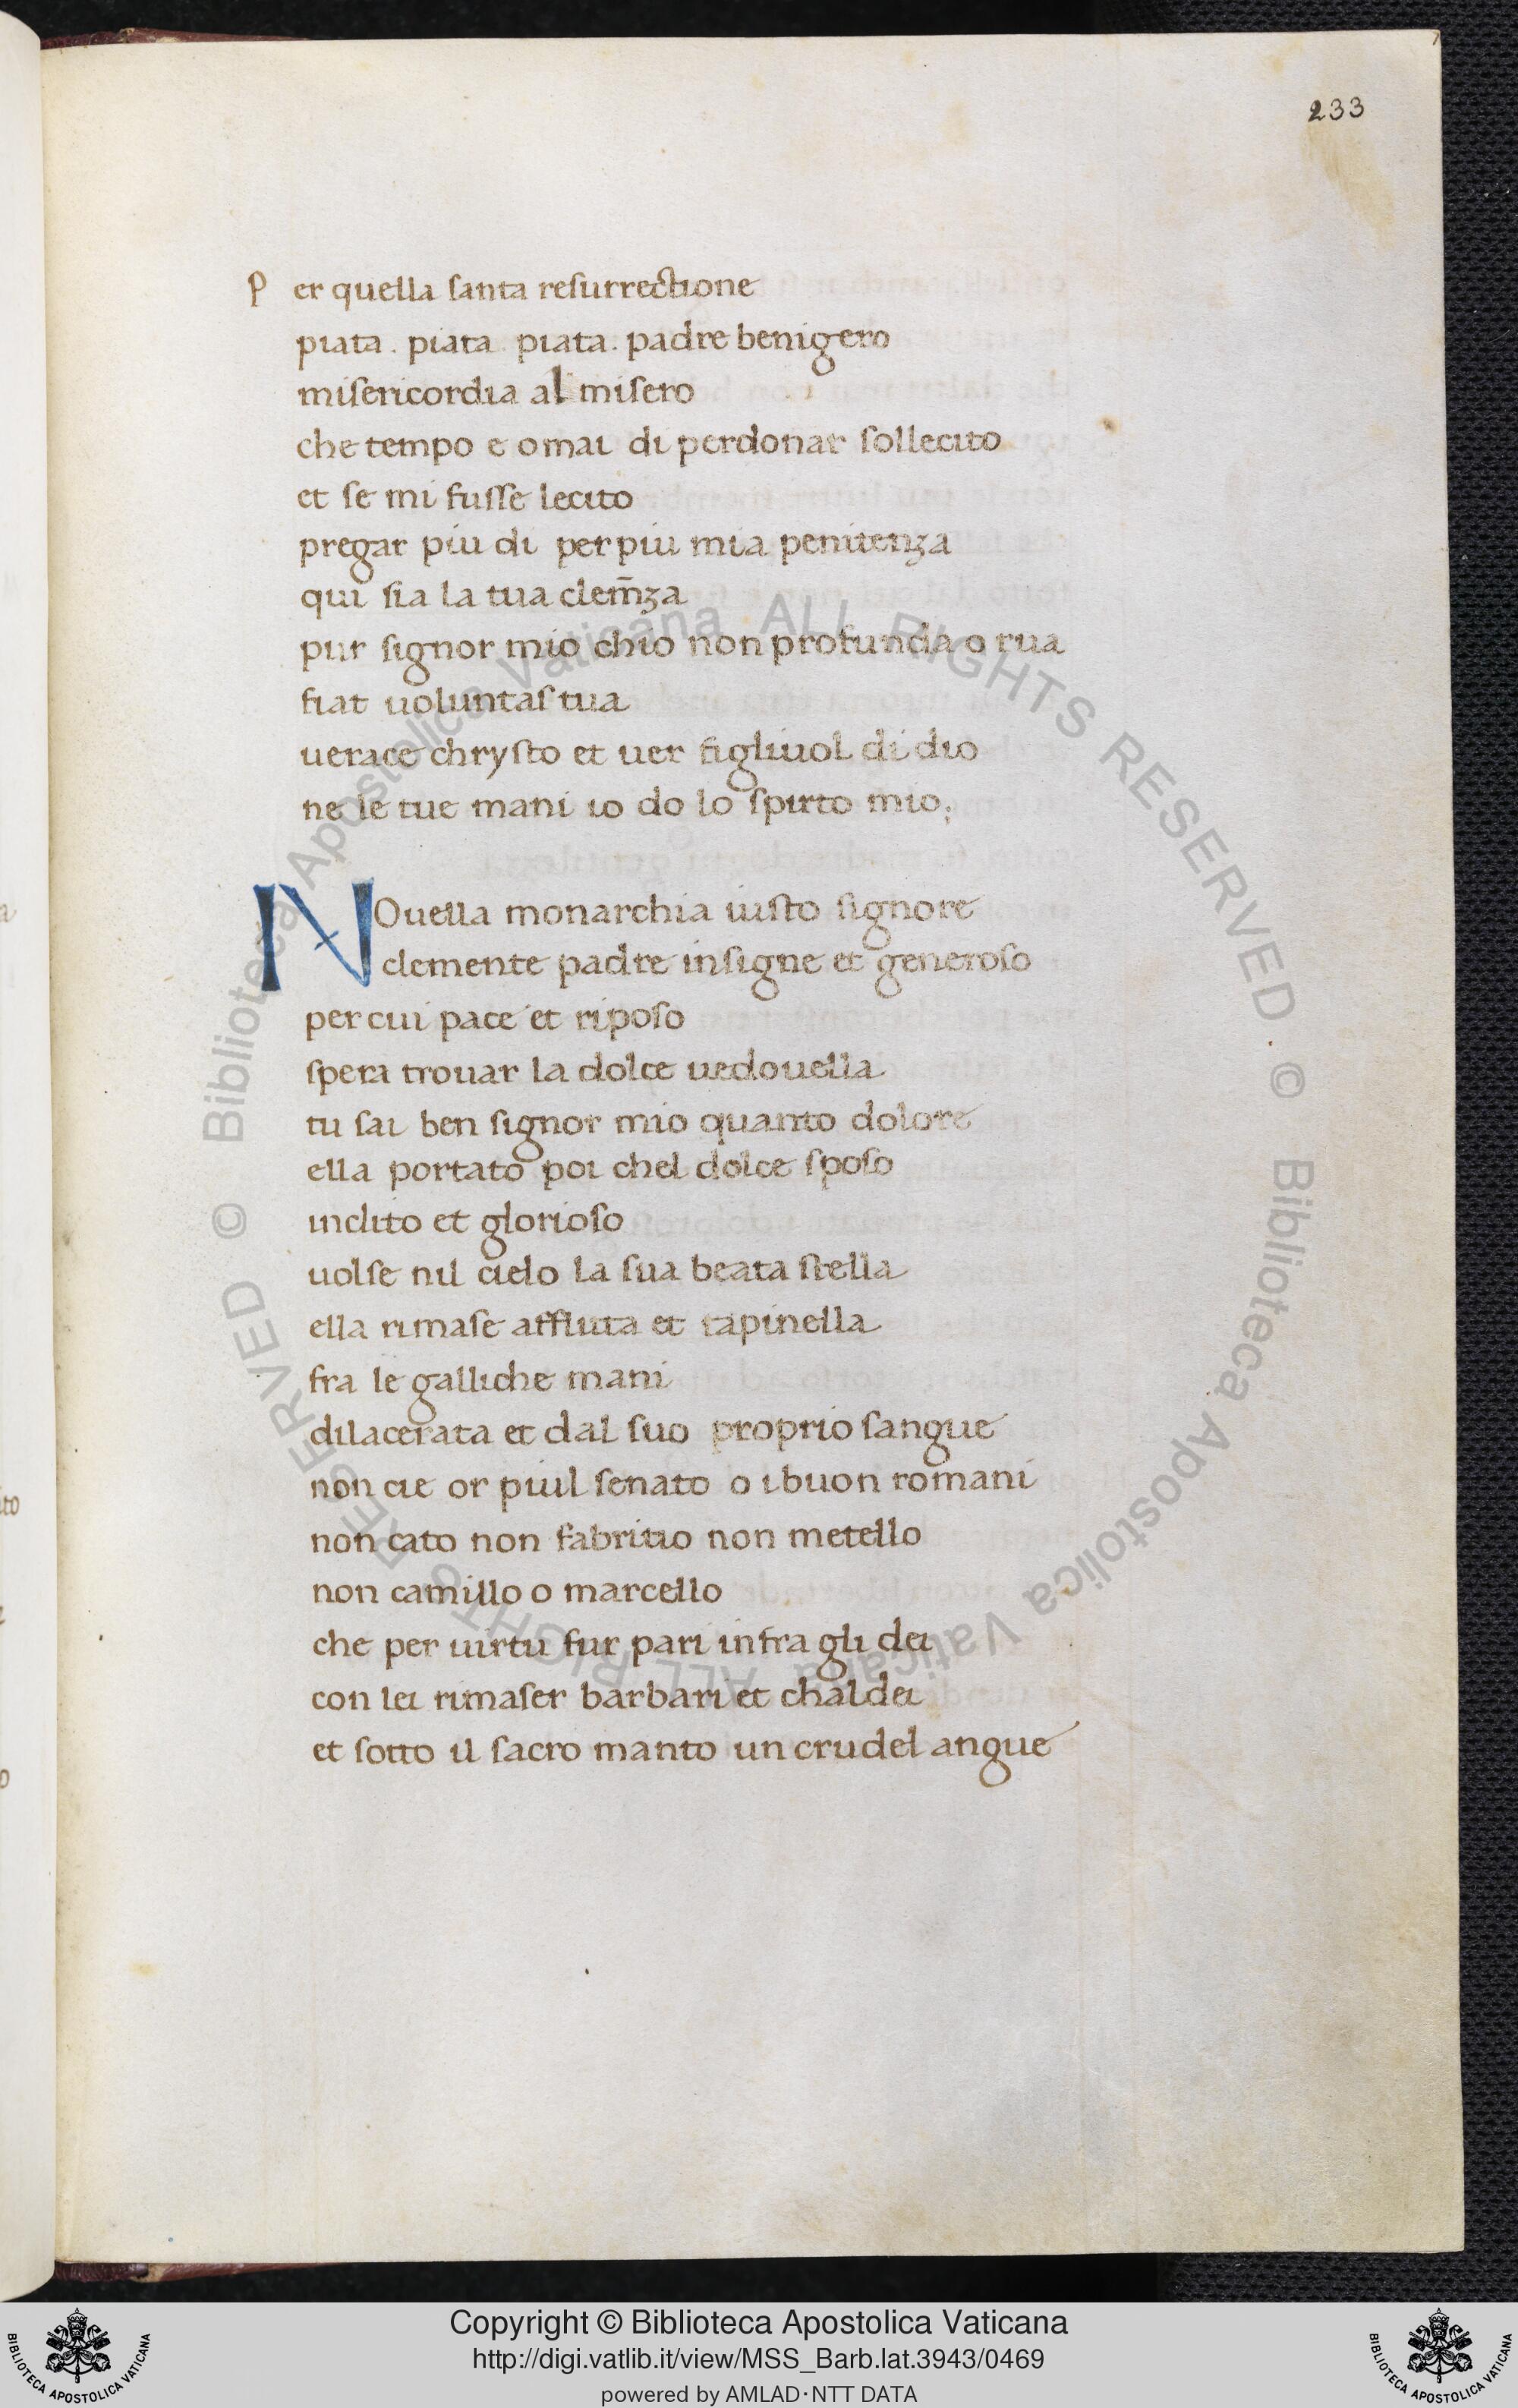 233
Per quella santa resurrectione
piata . piata piata . padre benigero
misericordia al misero
che tempo e omai di perdonar sollecito
et se mi fusse lecito
pregar piu di per piu mia penitenza
qui sia la tua clem̃za
pur signor mio chio non profunda o rua
fiat uoluntas tua
uerace chrysto et uer figliuol di dio
ne le tue mani io do lo spirto mio;
NOuella monarchia iusto signore
clemente padre insigne et generoso
per cui pace et riposo
spera trouar la dolce uedouella
tu sai ben signor mio quanto dolore
ella portato poi chel dolce sposo
inclito et glorioso
uolse nil cielo la sua beata stella
ella rimase afflicta et tapinella
fra le galliche mani
dilacerata et dal suo proprio sangue
non cie or piul senato o i buon romani
non cato non fabritio non metello
non camillo o marcello
che per uirtu fur pari infra gli dei
con lei rimaser barbari et chaldei
et sotto il sacro manto un crudel angue
© Biblioteca Apostolica Vaticana ALL RIGHTS RESERVED
© Biblioteca Apostolica Vaticana ALL RIGHTS RESERVED
Copyright © Biblioteca Apostolica Vaticana
http://digi.vatlib.it/view/MSS_Barb.lat.3943/0469
powered by AMLAD·NTT DATA
BIBLIOTECA APOSTOLICA VATICANA
BIBLIOTECA APOSTOLICA VATICANA